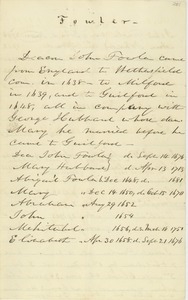 Fowler.
Deacon John Fowler came
from England to Wethersfield
Con. in 1635 to Milford
in 1639, and to Guilford in
1648, all in company with
George Hubbard whose dau.
Mary he married before he
came to Guilford.
Dea John Fowler d. Sep. 14 1676
Mary Hubbard d. Apr. 13 1713
Abigail Fowler Dec 1648. d. 1681
Mary Dec 14 1650, d. Feb. 15 1670
Abraham Aug 29 1652
John 1654
Mehitabel 1656, d. 1751
Elisabeth Apr. 30 1658. d. Sep. 21 1676